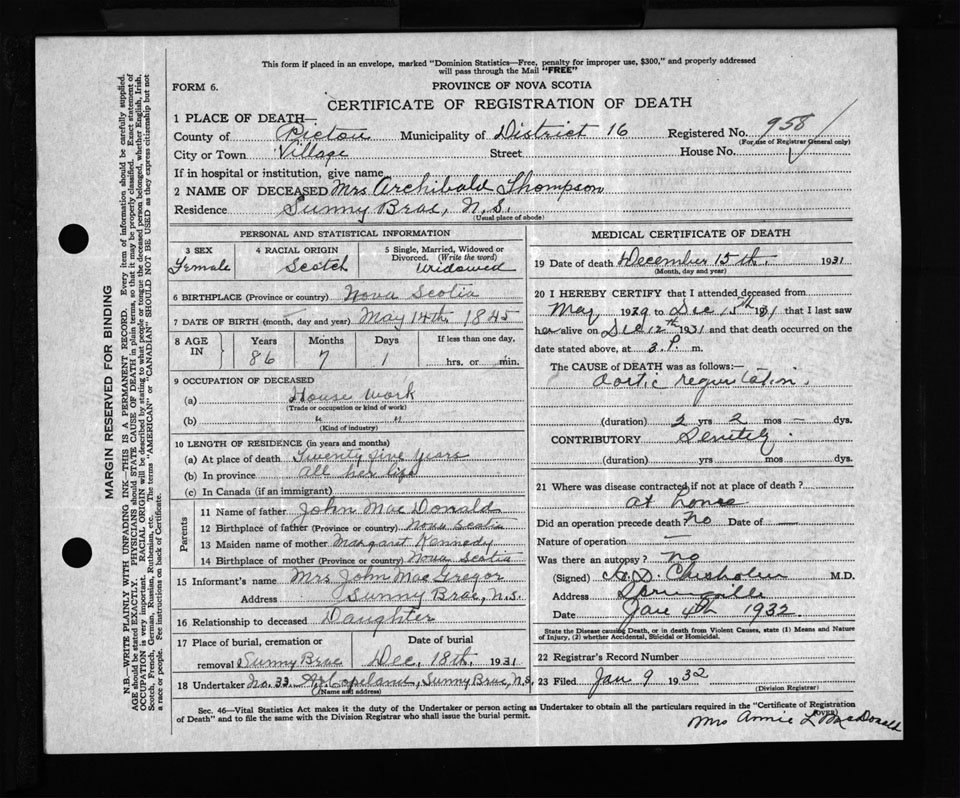 This form if placed in an envelope, marked "Dominion Statistics—Free, penalty for improper use, $300," and properly addressed
will pass through the Mail "FREE"
FORM 6.
PROVINCE OF NOVA SCOTIA
CERTIFICATE OF REGISTRATION OF DEATH
1 PLACE OF DEATH—
County of Pictou Municipality of District 16 Registered No. 958
(For use of Registrar General only)
City or Town Village Street House No.
If in hospital or institution, give name
2 NAME OF DECEASED Mrs Archibald Thompson
Residence Sunny Brae, N.S.
(Usual place of abode)
PERSONAL AND STATISTICAL INFORMATION
3 SEX 4 RACIAL ORIGIN 5 Single, Married, Widowed or
Divorced. (Write the word)
Female Scotch Widowed
6 BIRTHPLACE (Province or country) Nova Scotia
7 DATE OF BIRTH (month, day and year) May 14th. 1845
8 AGE IN Years Months Days If less than one day,
86 7 1 hrs. or min.
9 OCCUPATION OF DECEASED
(a) House Work
(Trade or occupation or kind of work)
(b) " "
(Kind of industry)
10 LENGTH OF RESIDENCE (in years and months)
(a) At place of death Twenty five Years
(b) In province All her life
(c) In Canada (if an immigrant)
Parents
11 Name of father John Mac Donald
12 Birthplace of father (Province or country) Nova Scotia
13 Maiden name of mother Margaret Kennedy
14 Birthplace of mother (Province or country) Nova Scotia
15 Informant's name Mrs John Mac Gregor
Address Sunny Brae, N.S.
16 Relationship to deceased Daughter
17 Place of burial, cremation or Date of burial
removal Sunny Brae Dec, 18th. 1931
18 Undertaker No. 33 Copeland, Sunny Brae, N.S,
(Name and address)
MEDICAL CERTIFICATE OF DEATH
19 Date of death December 15th. 1931
(Month, day and year)
20 I HEREBY CERTIFY that I attended deceased from
May 1929 to Dec 15th 1931 that I last saw
her alive on Dec 12th 1931 and that death occurred on the
date stated above, at 3. P. m.
The CAUSE of DEATH was as follows:—
Aortic regurtation.
(duration) 2 yrs 2 mos — dys.
CONTRIBUTORY
(duration) yrs. mos. dys.
21 Where was disease contracted if not at place of death?
at home
Did an operation precede death? No Date of —
Nature of operation —
Was there an autopsy? no
(Signed) Chisholm M.D.
Address Springville
Date Jan 4th 1932
State the Disease causing Death, or in death from Violent Causes, state (1) Means and Nature
of Injury, (2) whether Accidental, Suicidal or Homicidal.
22 Registrar's Record Number
23 Filed Jan 9 1932
(Division Registrar)
Sec. 46—Vital Statistics Act makes it the duty of the Undertaker or person acting as Undertaker to obtain all the particulars required in the "Certificate of Registration
of Death" and to file the same with the Division Registrar who shall issue the burial permit.
(OVER)
Mrs Annie L MacDonald
MARGIN RESERVED FOR BINDING
N.B.—WRITE PLAINLY WITH UNFADING INK—THIS IS A PERMANENT RECORD. Every item of information should be carefully supplied.
AGE should be stated EXACTLY. PHYSICIANS should STATE CAUSE OF DEATH in plain terms, so that it may be properly classified. Exact statement of
OCCUPATION is very important. RACIAL ORIGIN will be described by stating to what people or tongue the deceased person belonged, whether English, Irish,
Scotch, French, German, Russian, Ruthenian, etc. The terms "AMERICAN" or "CANADIAN" SHOULD NOT BE USED as they express citizenship but not
a race or people. See instructions on back of Certificate.